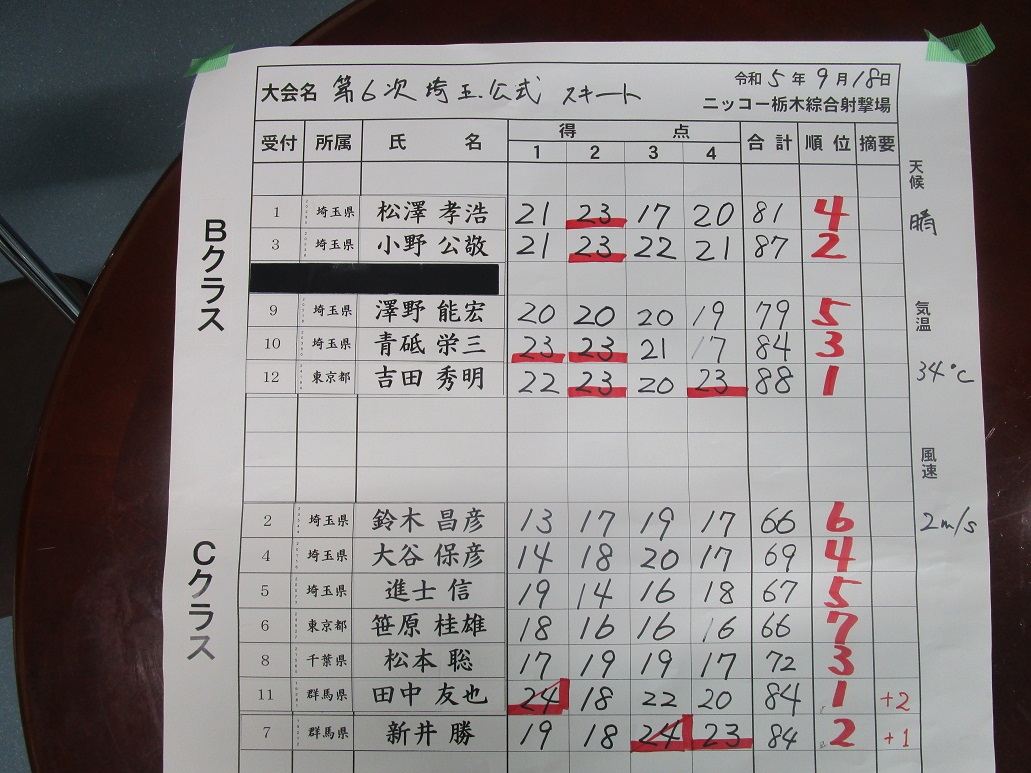 大会名 第6次埼玉公式 スキート 令和 5 年 9 月 18 日
ニッコー栃木綜合射撃場
受付 所属 氏 名 得 点 合計 順位 摘要
1 2 3 4
天候 晴
気温 34°C
風速 2m/s
Bクラス
1 埼玉県 松澤 孝浩 21 23 17 20 81 4
3 埼玉県 小野 公敬 21 23 22 21 87 2
9 埼玉県 澤野 能宏 20 20 20 19 79 5
10 埼玉県 青砥 栄三 23 23 21 17 84 3
12 東京都 吉田 秀明 22 23 20 23 88 1
Cクラス
2 埼玉県 鈴木 昌彦 13 17 19 17 66 6
4 埼玉県 大谷 保彦 14 18 20 17 69 4
5 埼玉県 進士 信 19 14 16 18 67 5
6 東京都 笹原 桂雄 18 16 16 16 66 7
8 千葉県 松本 聡 17 19 19 17 72 3
11 群馬県 田中 友也 24 18 22 20 84 1 +2
7 群馬県 新井 勝 19 18 24 23 84 2 +1